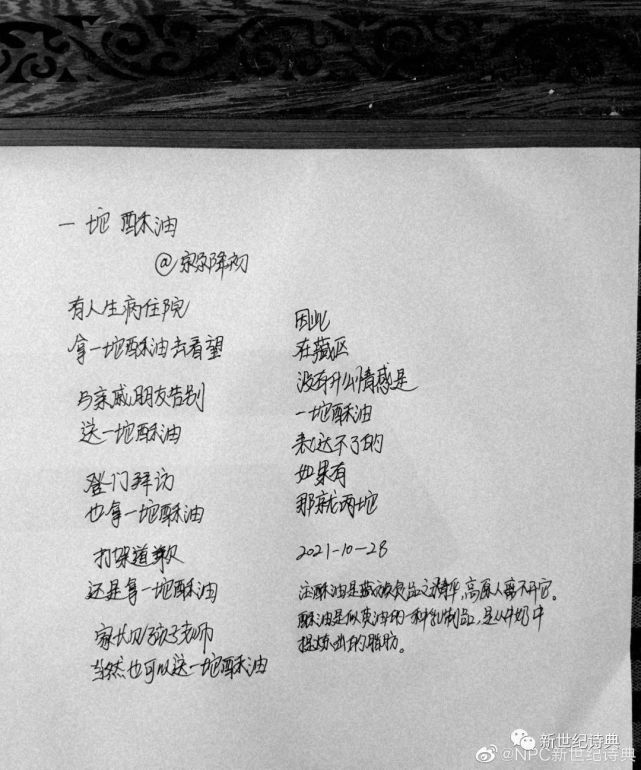 一坨酥油
有人生病住院
拿一坨酥油去看望
与亲戚朋友告别
送一坨酥油
登门拜访
也拿一坨酥油
打架道歉
还是拿一坨酥油
家长见孩子老师
当然也可以送一坨酥油
因此
在藏区
没有什么情感是
一坨酥油
表达不了的
如果有
那就两坨
2021-10-28
注酥油是藏族食品之精华,高原人离不开它。
酥油是似黄油的一种乳制品,是从牛奶中
提炼出的脂肪。
新世纪诗典
@NPC新世纪诗典